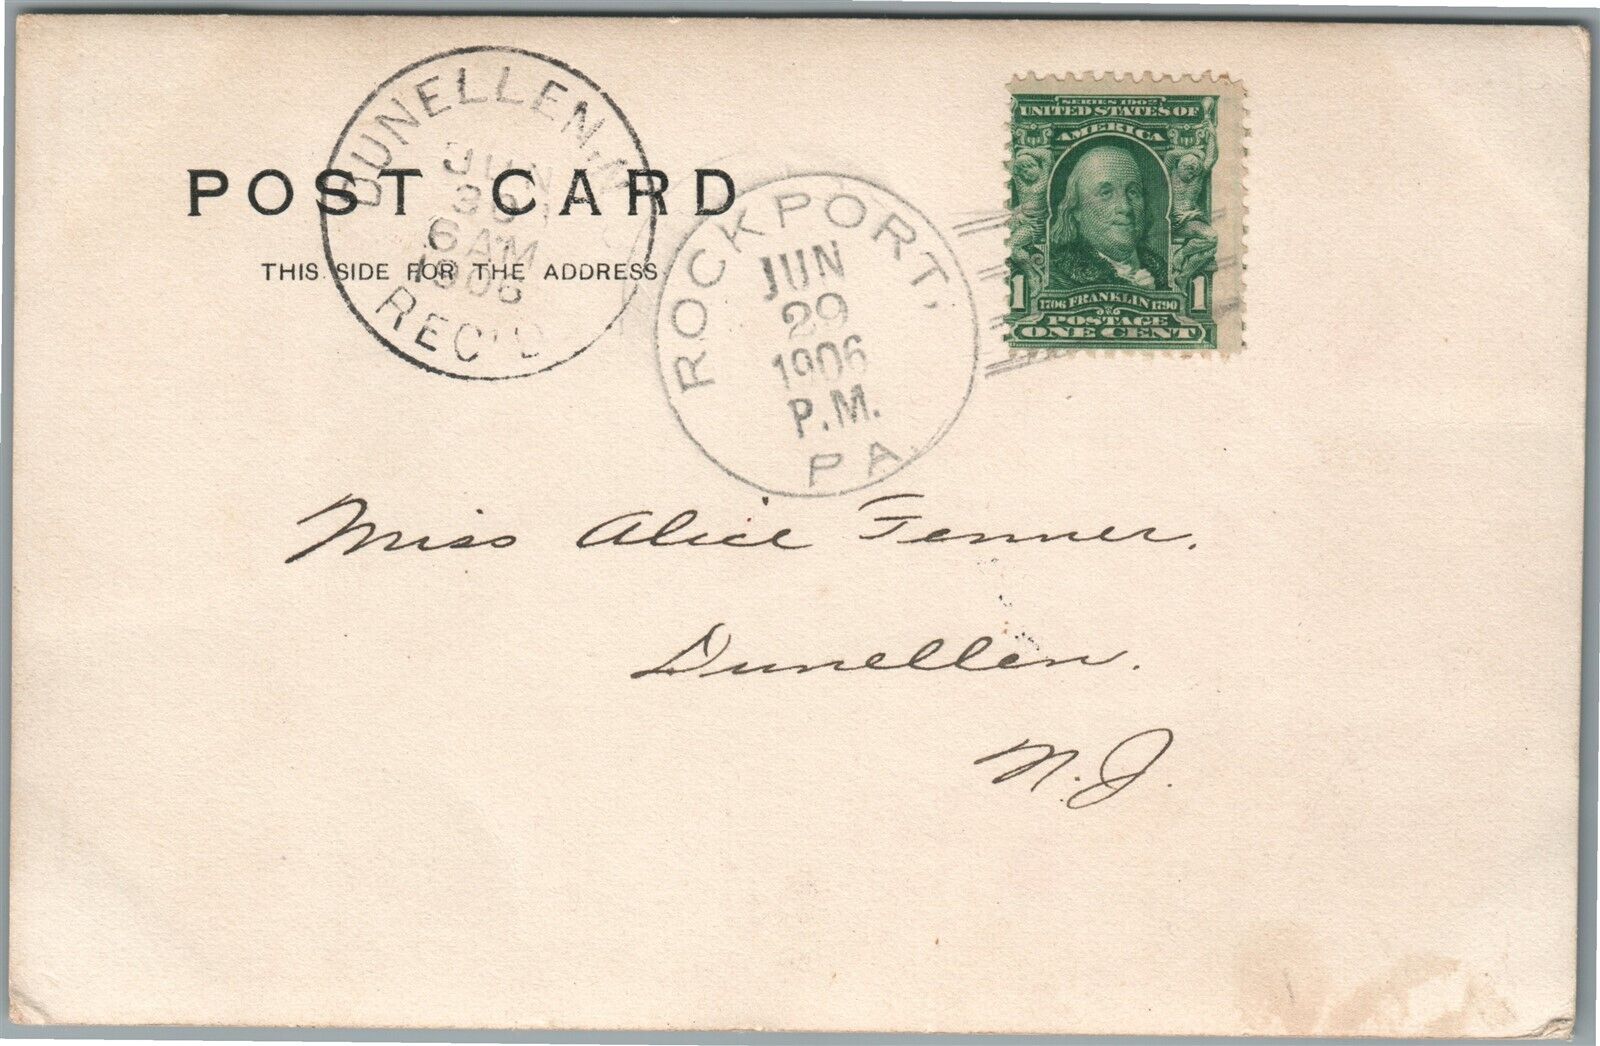 DUNELLEN, N.J.
JUN
30
6 AM
1906
REC'D
POST CARD
THIS SIDE FOR THE ADDRESS
ROCKPORT,
JUN
29
1906
P.M.
PA.
SERIES 1902
UNITED STATES OF
AMERICA
1 1706 FRANKLIN 1790 1
POSTAGE
ONE CENT
Miss Alice Fenner.
Dunellen.
N.J.